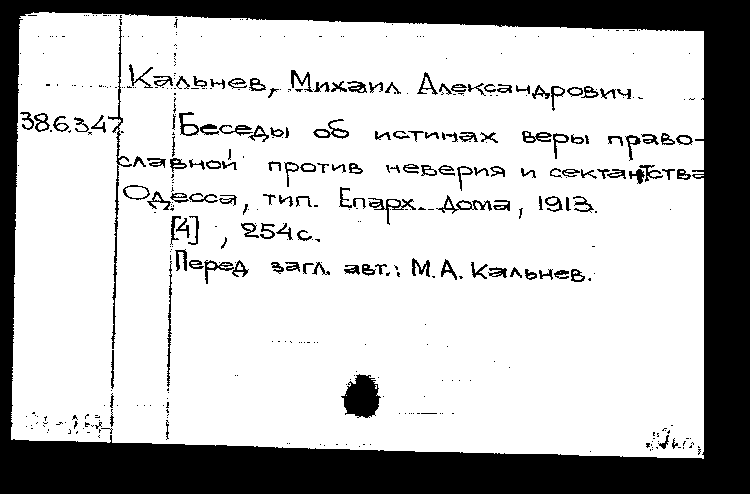 Кальнев, Михаил Александрович.
38.6.3.47. Беседы об истинах веры право-
славной против неверия и сектантства
Одесса, тип. Епарх. дома, 1913.
[4], 254 с.
Перед загл. авт.: М.А. Кальнев.